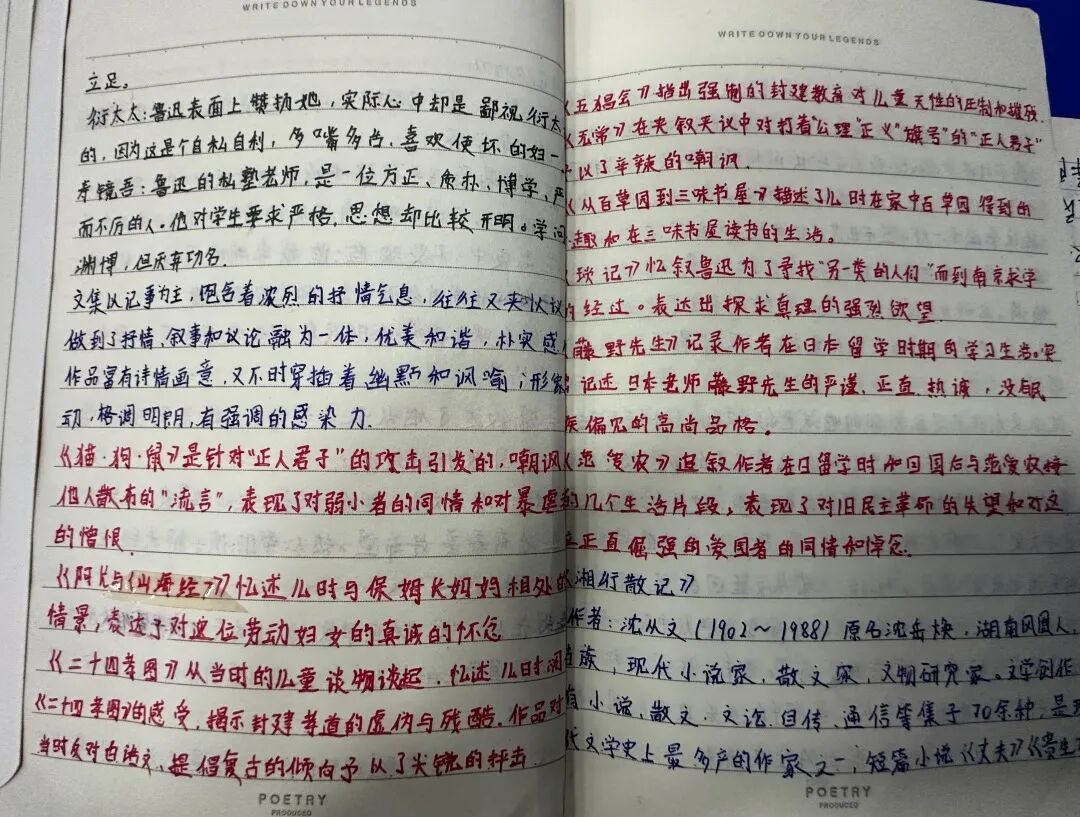 WRITE DOWN YOUR LEGENDS
立足。
衍太太:鲁迅表面上赞扬她,实际心中却是鄙视衍太
的,因为这是个自私自利,多嘴多舌,喜欢使坏的妇
寿镜吾:鲁迅的私塾老师,是一位方正、质朴、博学、严
而不厉的人。他对学生要求严格,思想却比较开明。学问
渊博,但厌弃功名.
文集以记事为主,饱含着浓烈的抒情气息,往往又夹以议
做到了抒情、叙事和议论融为一体,优美和谐,朴实感
作品富有诗情画意,又不时穿插着幽默和讽喻;形象
动,格调明朗,有强调的感染力.
《猫·狗·鼠》是针对“正人君子”的攻击引发的,嘲讽
他人散布的“流言”,表现了对弱小者的同情和对暴虐
的憎恨.
《阿长与《山海经》》忆述儿时与保姆长妈妈相处的
情景,表达了对这位劳动妇女的真诚的怀念
《二十四孝图》从当时的儿童读物谈起,忆述儿时阅
《二十四孝图》的感受,揭示封建孝道的虚伪与残酷.作品对
当时反对白话文、提倡复古的倾向予以了尖锐的抨击.
POETRY
PRODUCED
WRITE DOWN YOUR LEGENDS
《五猖会》指出强制的封建教育对儿童天性的压制和摧残.
《无常》在夹叙夹议中对打着“公理”“正义”旗号”的“正人君子”
予以了辛辣的嘲讽.
《从百草园到三味书屋》描述了儿时在家中百草园得到的
趣和在三味书屋读书的生活。
《琐记》忆叙鲁迅为了寻找“另一类的人们”而到南京求学
的经过。表达出探求真理的强烈欲望.
《藤野先生》记录作者在日本留学时期的学习生活。
记述日本老师藤野先生的严谨、正直、热诚,没民
族偏见的高尚品格。
《范爱农》追叙作者在日留学时和回国后与范爱农接
的几个生活片段,表现了对旧民主革命的失望和对这
位正直倔强的爱国者的同情和悼念.
《湘行散记》
作者:沈从文(1902~1988)原名沈岳焕,湖南凤凰人,
族,现代小说家,散文家,文物研究家。文学创作
有小说、散文、文论、自传、通信等集子70余种,是现
代文学史上最多产的作家之一,短篇小说《丈夫》《贵生
POETRY
PRODUCED